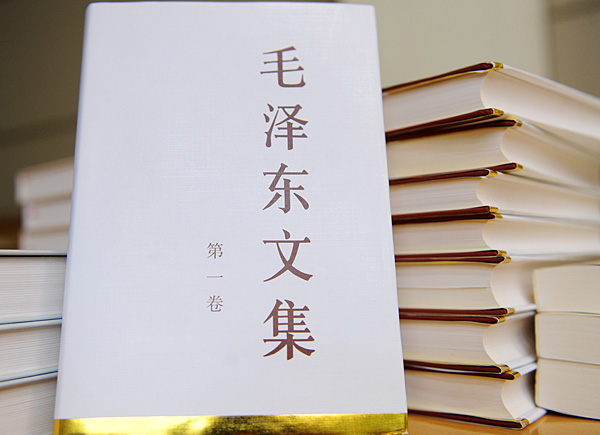 毛泽东文集
第一卷